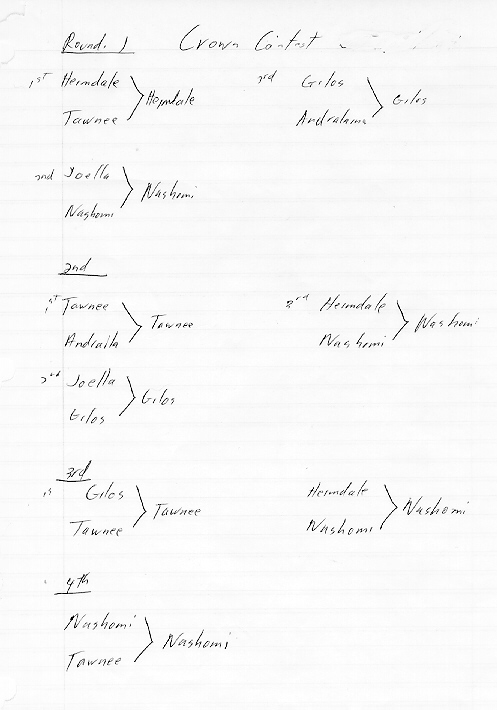 Round. 1 Crown Contest
1st Hermdale
Tawnee
Hermdale
3rd Gilos
Andralama
Gilos
2nd Joella
Nashomi
Nashomi
2nd
1st Tawnee
Andraila
Tawnee
3rd Hermdale
Nashomi
Nashomi
2nd Joella
Gilos
Gilos
3rd
1s Gilos
Tawnee
Tawnee
Hermdale
Nashomi
Nashomi
4th
Nashomi
Tawnee
Nashomi